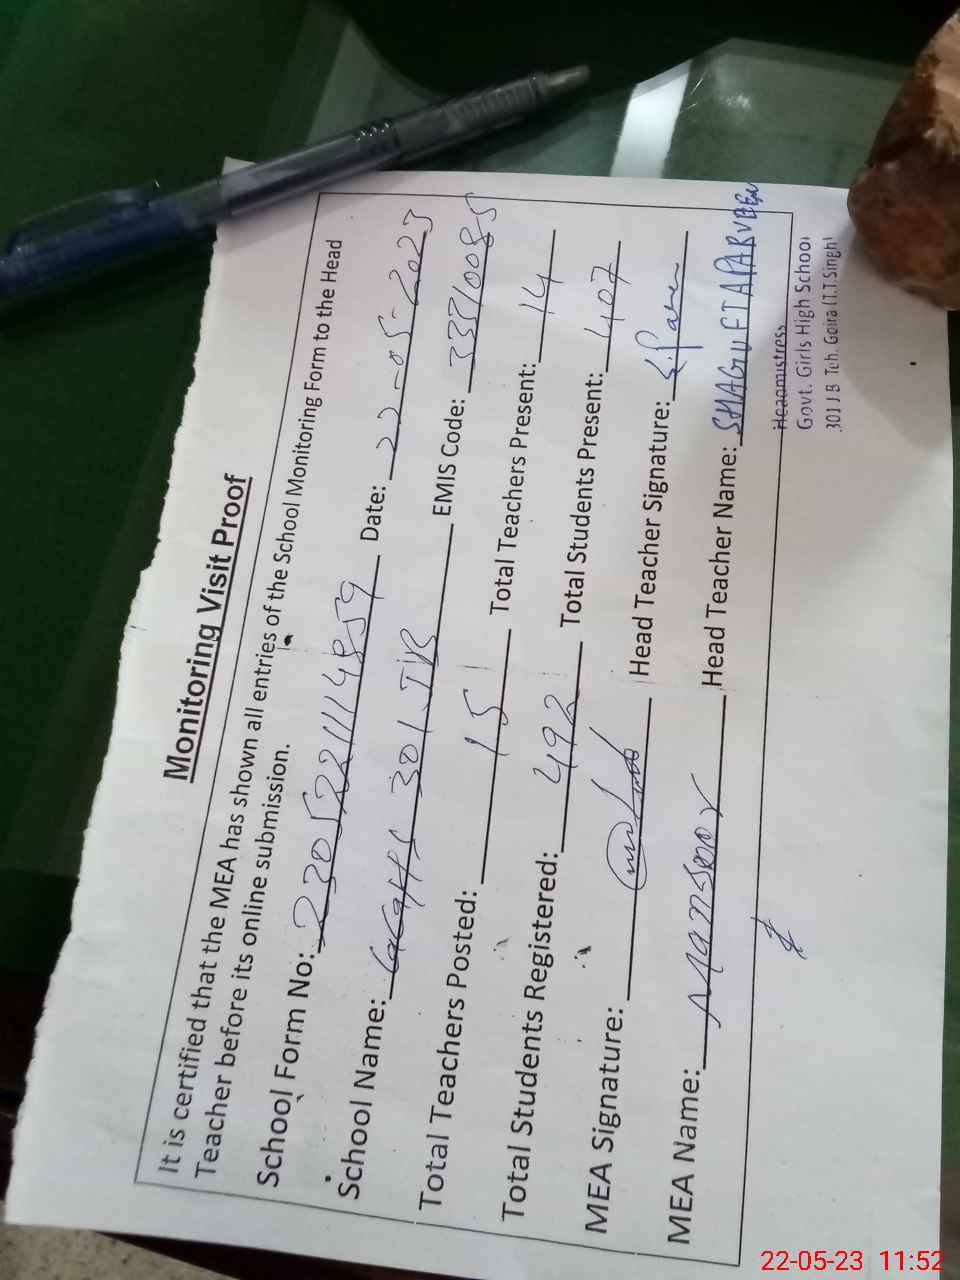 Monitoring Visit Proof
It is certified that the MEA has shown all entries of the School Monitoring Form to the Head
Teacher before its online submission.
School Form No: 2305221114859 Date: 22-05-2023
School Name: GGHS 301 JB EMIS Code: 33310085
Total Teachers Posted: 15 Total Teachers Present: 14
Total Students Registered: 492 Total Students Present: 407
MEA Signature: Head Teacher Signature: S. Parveen
MEA Name: Mansoor Head Teacher Name: SHAGUFTA PARVEEN
Headmistress
Govt. Girls High School
301 J B Teh. Gojra (T.T.Singh)
22-05-23 11:52